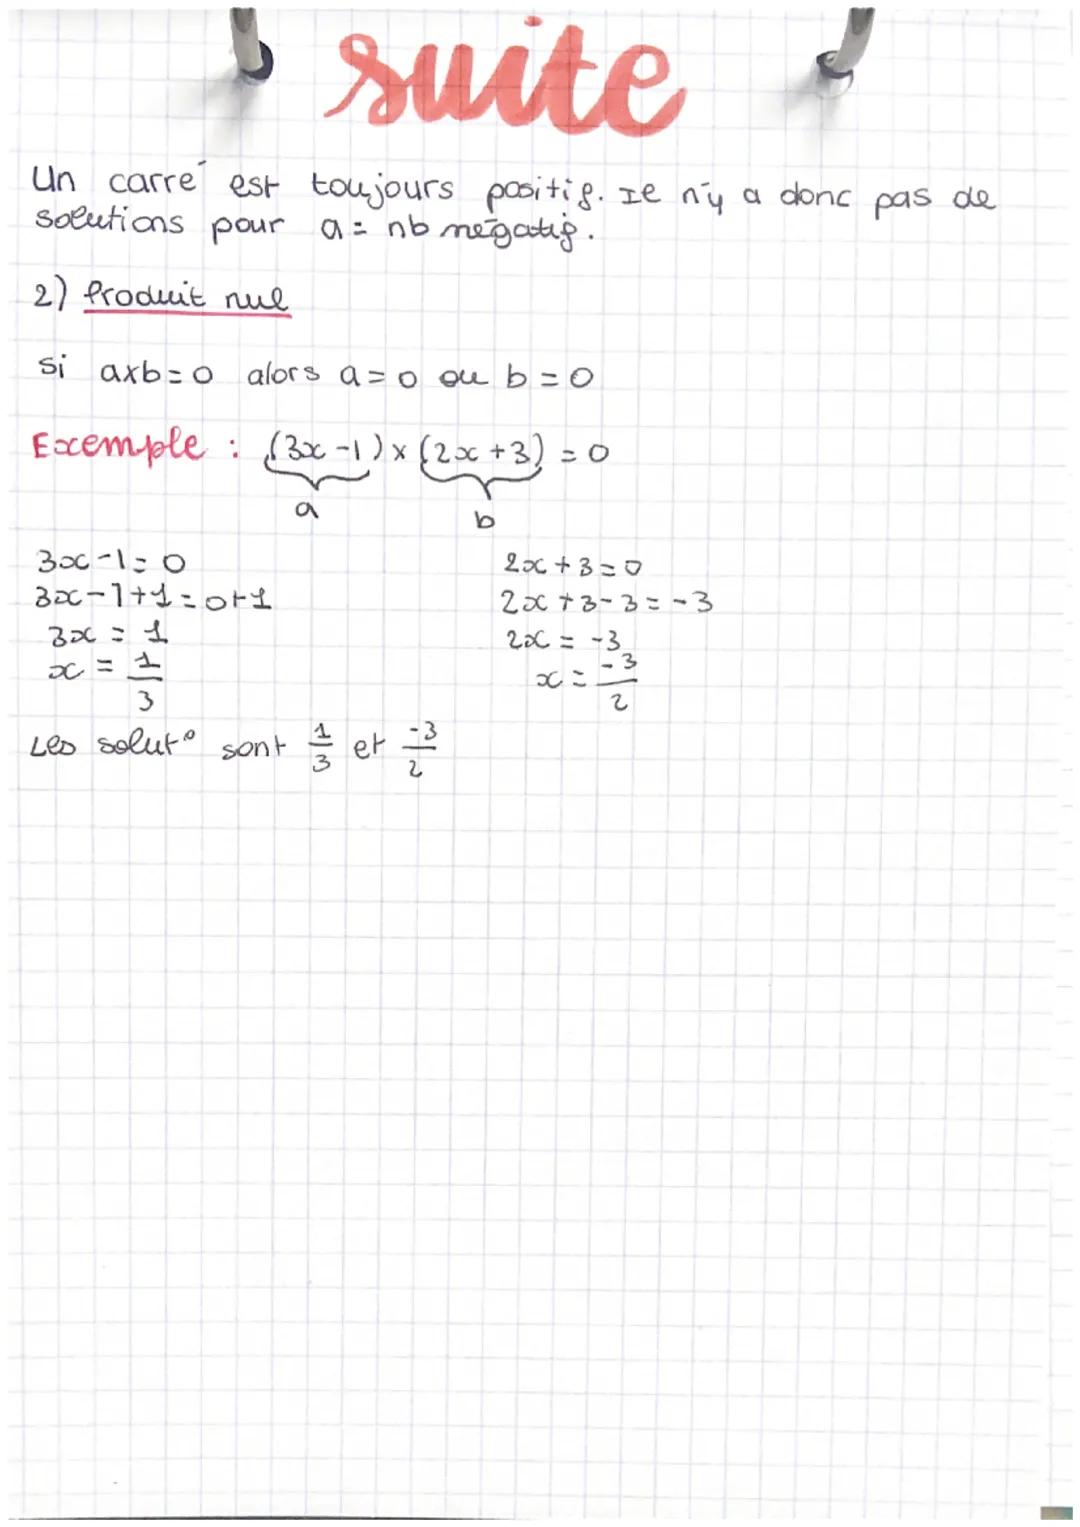 suite
Un carré est toujours positif. Il n'y a donc pas de
solutions pour a = nb négatif.
2) Produit nul
si axb=0 alors a=0 ou b=0
Exemple : (3x-1)x(2x+3)=0
a b
3x-1=0 2x+3=0
3x-1+1=0+1 2x+3-3=-3
3x=1 2x=-3
x=1/3 x=-3/2
Les solut° sont 1/3 et -3/2